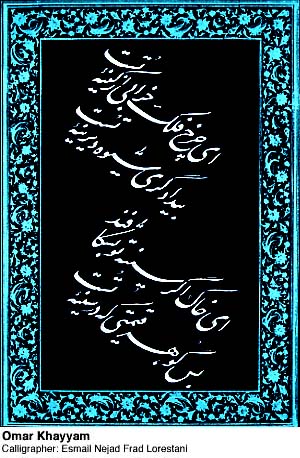 ای چرخ فلک خرابی از کینه تست
بیدادگری شیوه دیرینه تست
ای خاک اگر سینه تو بشکافند
بس گوهر قیمتی که در سینه تست
Omar Khayyam
Calligrapher: Esmail Nejad Frad Lorestani